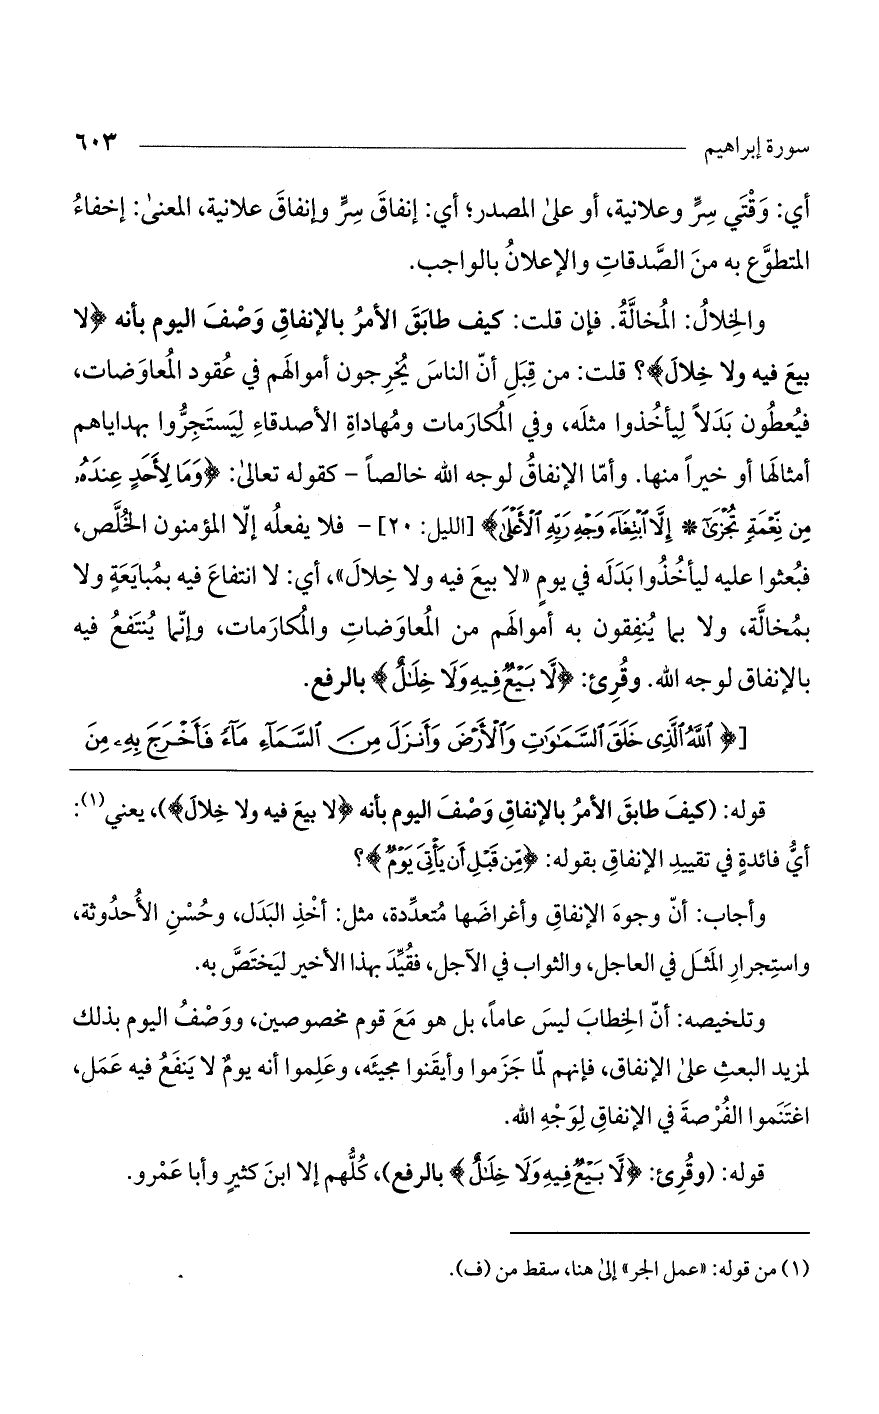 سورة إبراهيم ٦٠٣
أي: وَقْتَي سِرٍّ وعلانية، أو علىٰ المصدر؛ أي: إنفاقَ سِرٍّ وإنفاقَ علانية، المعنىٰ: إخفاءُ
المتطوَّع به منَ الصَّدقاتِ والإعلانُ بالواجب.
والخِلالُ: المُخالَّةُ. فإن قلت: كيف طابَقَ الأمرُ بالإنفاقِ وَصْفَ اليوم بأنه ﴿لا
بيعَ فيه ولا خِلالَ﴾؟ قلت: من قِبَلِ أنّ الناسَ يُخرِجون أموالَهم في عُقود المُعاوَضات،
فيُعطون بَدَلاً لِيأخُذوا مثلَه، وفي المُكارَمات ومُهاداةِ الأصدقاءِ لِيَستَجِرُّوا بهداياهم
أمثالهَا أو خيراً منها. وأمّا الإنفاقُ لوجه الله خالصاً - كقوله تعالىٰ: ﴿وَمَا لِأَحَدٍ عِندَهُۥ
مِن نِّعْمَةٍ تُجْزَىٰٓ * إِلَّا ٱبْتِغَآءَ وَجْهِ رَبِّهِ ٱلْأَعْلَىٰ﴾ [الليل: ٢٠] - فلا يفعلُه إلّا المؤمنون الخُلَّص،
فبُعثوا عليه ليأخُذُوا بَدَلَه في يومٍ «لا بيعَ فيه ولا خِلالَ»، أي: لا انتفاعَ فيه بمُبايَعَةٍ ولا
بمُخالَّة، ولا بما يُنفِقون به أموالَهم من المُعاوَضاتِ والمُكارَمات، وإنّما يُنتَفعُ فيه
بالإنفاق لوجه الله. وقُرِئ: ﴿لَّا بَيْعٌ فِيهِ وَلَا خِلَٰلٌ﴾ بالرفع.
[﴿ ٱللَّهُ ٱلَّذِى خَلَقَ ٱلسَّمَٰوَٰتِ وَٱلْأَرْضَ وَأَنزَلَ مِنَ ٱلسَّمَآءِ مَآءً فَأَخْرَجَ بِهِۦ مِنَ
قوله: (كيفَ طابقَ الأمرُ بالإنفاقِ وَصْفَ اليوم بأنه ﴿لا بيعَ فيه ولا خِلالَ﴾)، يعني(١):
أيُّ فائدةٍ في تقييدِ الإنفاق بقوله: ﴿مِّن قَبْلِ أَن يَأْتِىَ يَوْمٌ﴾؟
وأجاب: أنّ وجوهَ الإنفاقِ وأغراضَها مُتعدِّدة، مثل: أخْذِ البَدَل، وحُسْنِ الأُحدُوثة،
واستِجرارِ المَثَل في العاجل، والثواب في الآجل، فقُيِّدَ بهذا الأخير ليَختَصَّ به.
وتلخيصه: أنّ الخِطابَ ليسَ عاماً، بل هو مَعَ قوم مخصوصين، ووَصْفُ اليوم بذلك
لمزيد البعثِ علىٰ الإنفاق، فإنهم لمّا جَزَموا وأيقَنوا مجيئَه، وعَلِموا أنه يومٌ لا يَنفَعُ فيه عَمَل،
اغتَنَموا الفُرْصةَ في الإنفاقِ لِوَجْهِ الله.
قوله: (وقُرِئ: ﴿لَّا بَيْعٌ فِيهِ وَلَا خِلَٰلٌ﴾ بالرفع)، كُلُّهم إلا ابنَ كثيرٍ وأبا عَمْرو.
(١) من قوله: «عمل الجر» إلىٰ هنا، سقط من (ف).